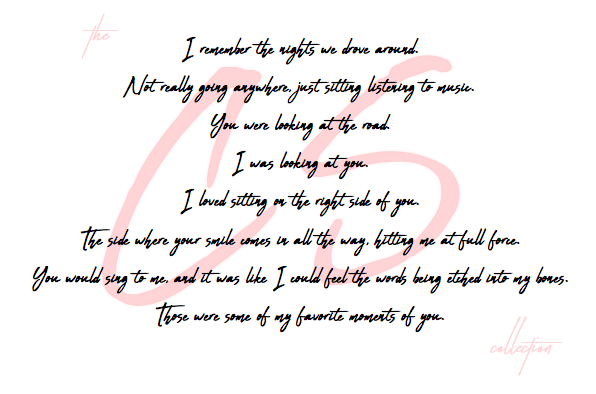 the
CS
I remember the nights we drove around.
Not really going anywhere, just sitting listening to music.
You were looking at the road.
I was looking at you.
I loved sitting on the right side of you.
The side where your smile comes in all the way, hitting me at full force.
You would sing to me, and it was like I could feel the words being etched into my bones.
Those were some of my favorite moments of you.
collection